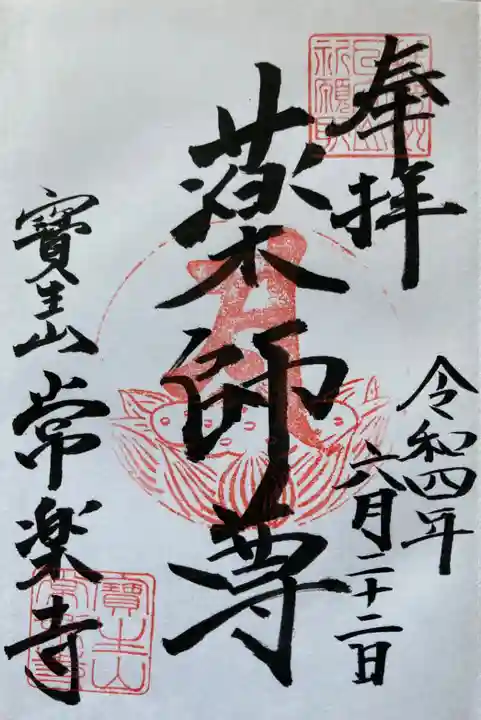 奉拝
令和四年
六月二十二日
薬師尊
寶生山
常楽寺
寶生山
常楽寺